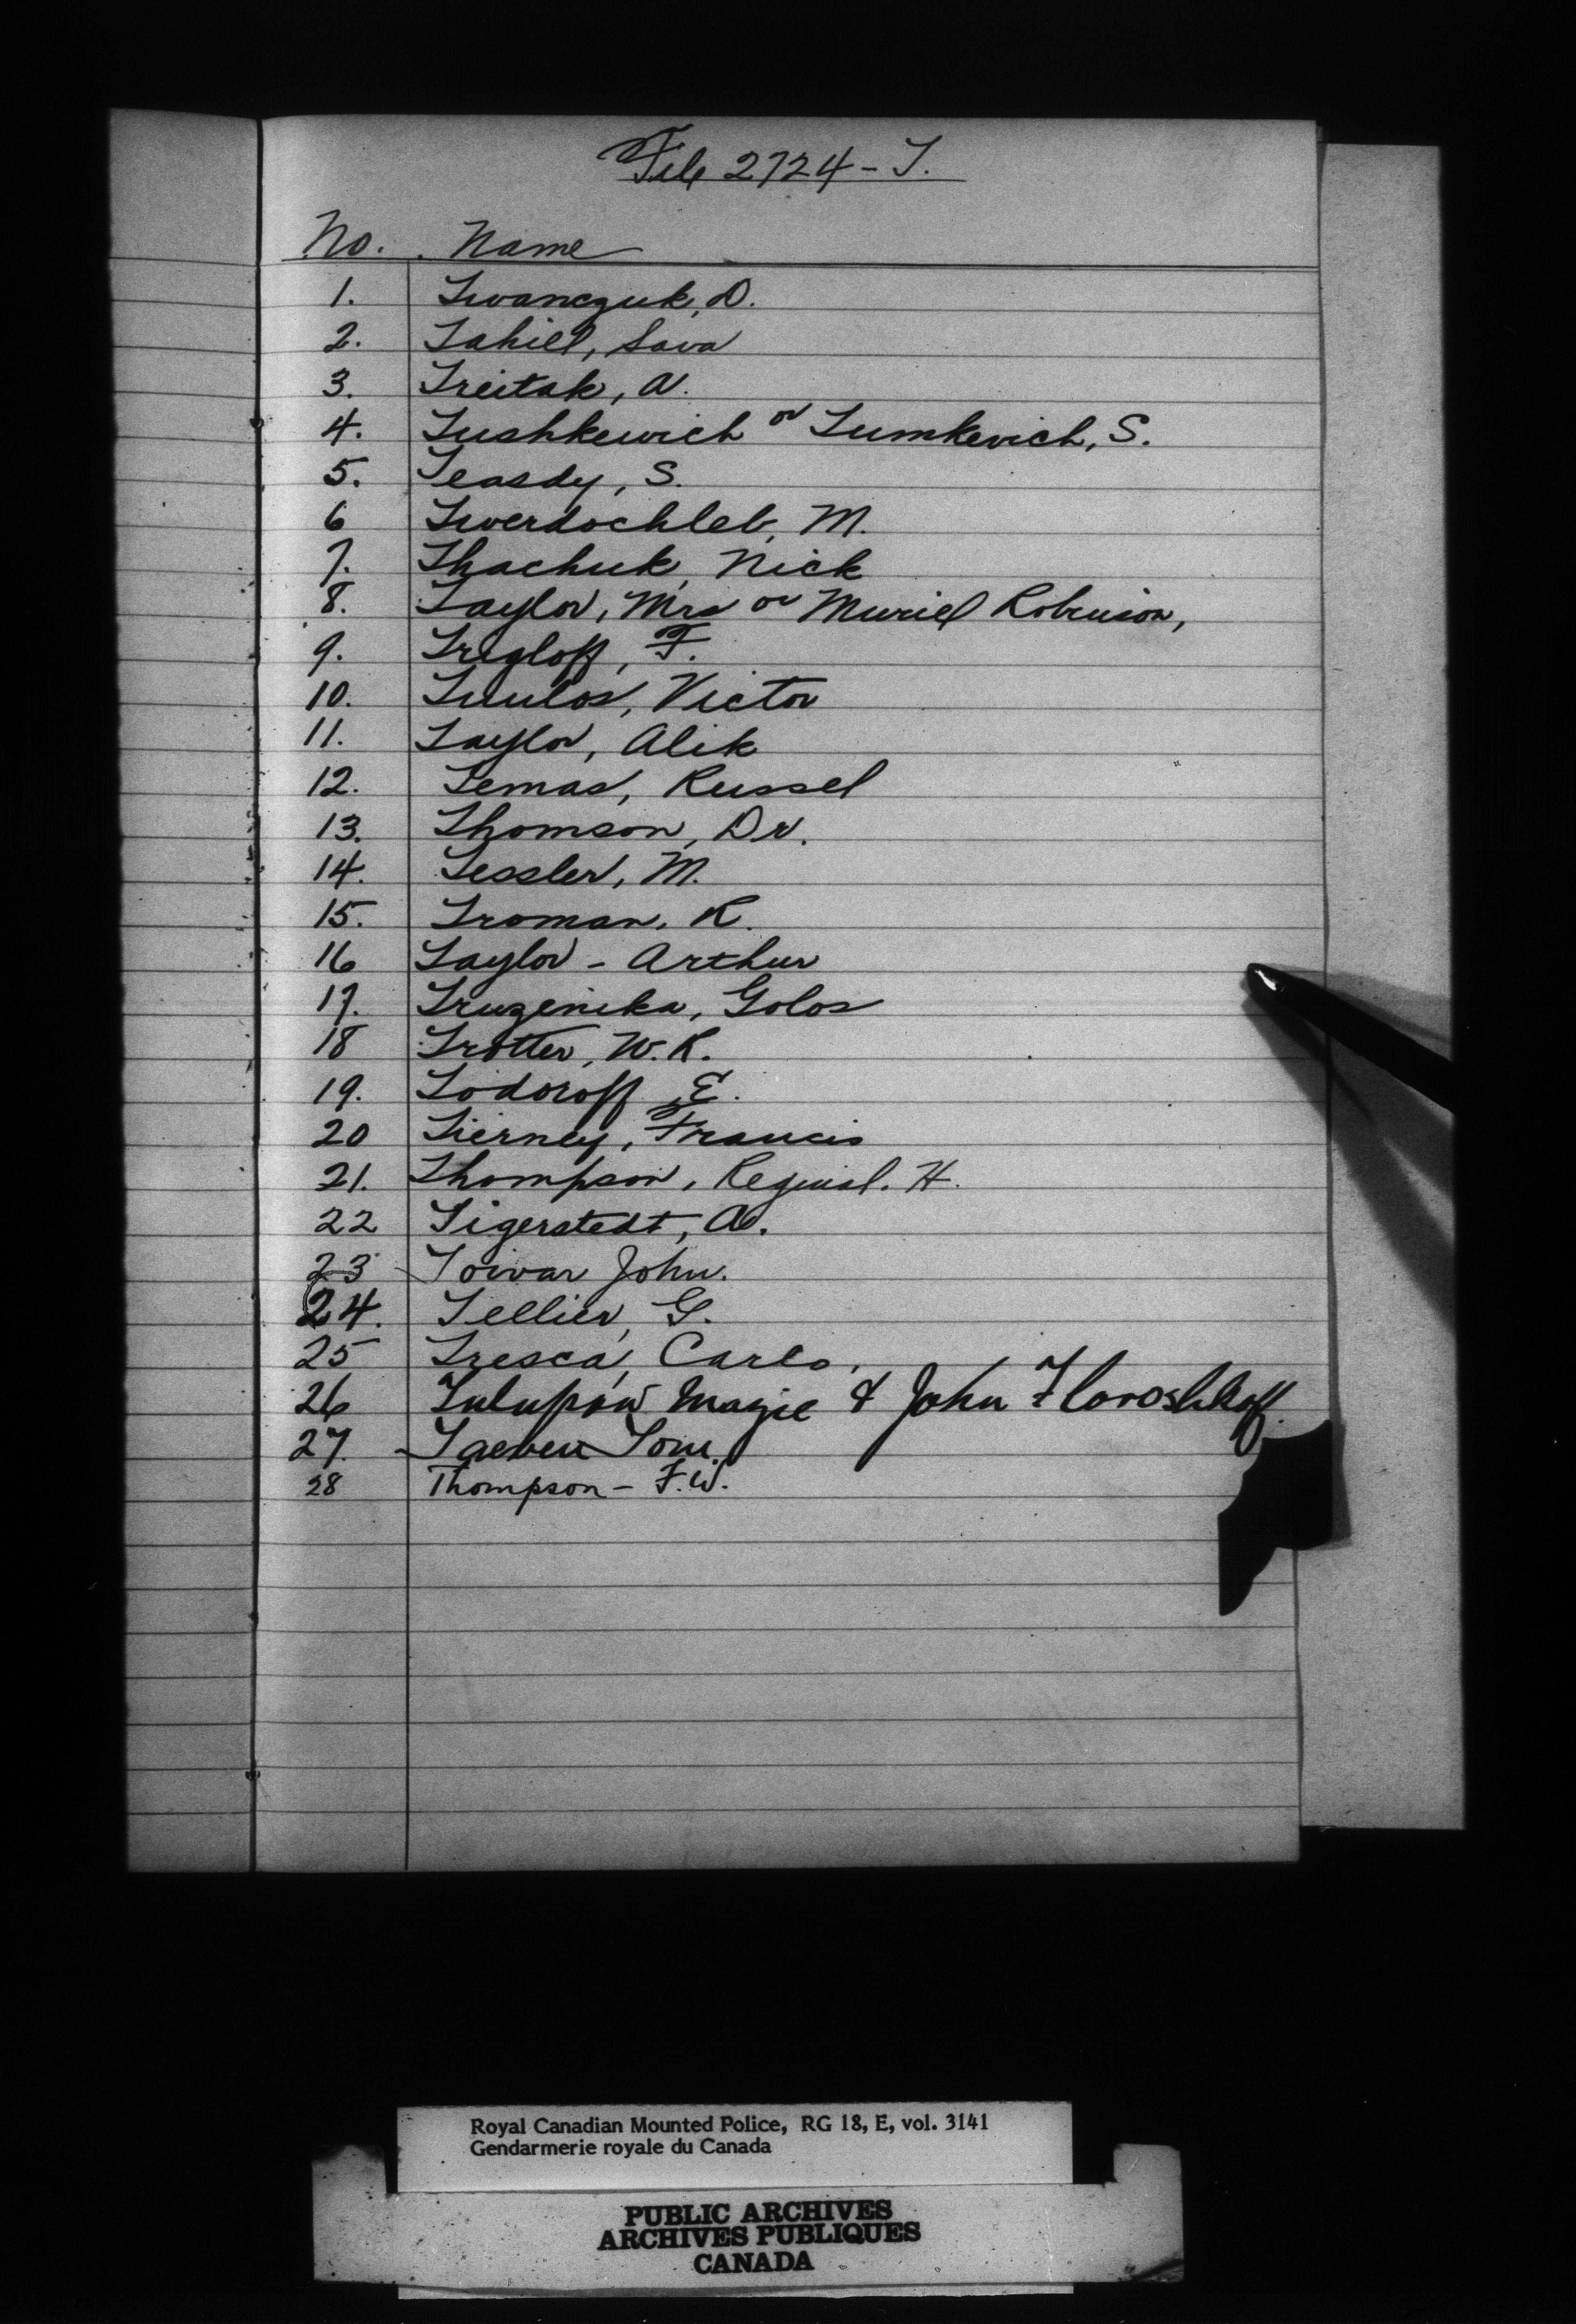 File 2724 - T.
No. Name
1. Twanczuk, D.
2. Tahiel, Sava
3. Treitak, A.
4. Tushkewich or Tumkevich, S.
5. Teasdy, S.
6 Twerdochleb, M.
7. Thachuk, Nick
8. Taylor, Mrs or Muriel Robinson,
9. Tregloff, F.
10. Tuulos, Victor
11. Taylor, Alik
12. Temas, Russel
13. Thomson, Dr.
14. Tessler, M.
15. Troman, R.
16 Taylor - Arthur
17. Truzenika, Golos
18 Trotter, W. R.
19. Todoroff, E.
20 Tierney, Francis
21. Thompson, Reginal. H.
22 Tigerstedt, A.
23 Toivar John.
24. Tellier, G.
25 Tresca, Carlo.
26 Tulupow Mazie & John Horoshkoff.
27. Tom.
28 Thompson - F.W.
Royal Canadian Mounted Police, RG 18, E, vol. 3141
Gendarmerie royale du Canada
PUBLIC ARCHIVES
ARCHIVES PUBLIQUES
CANADA